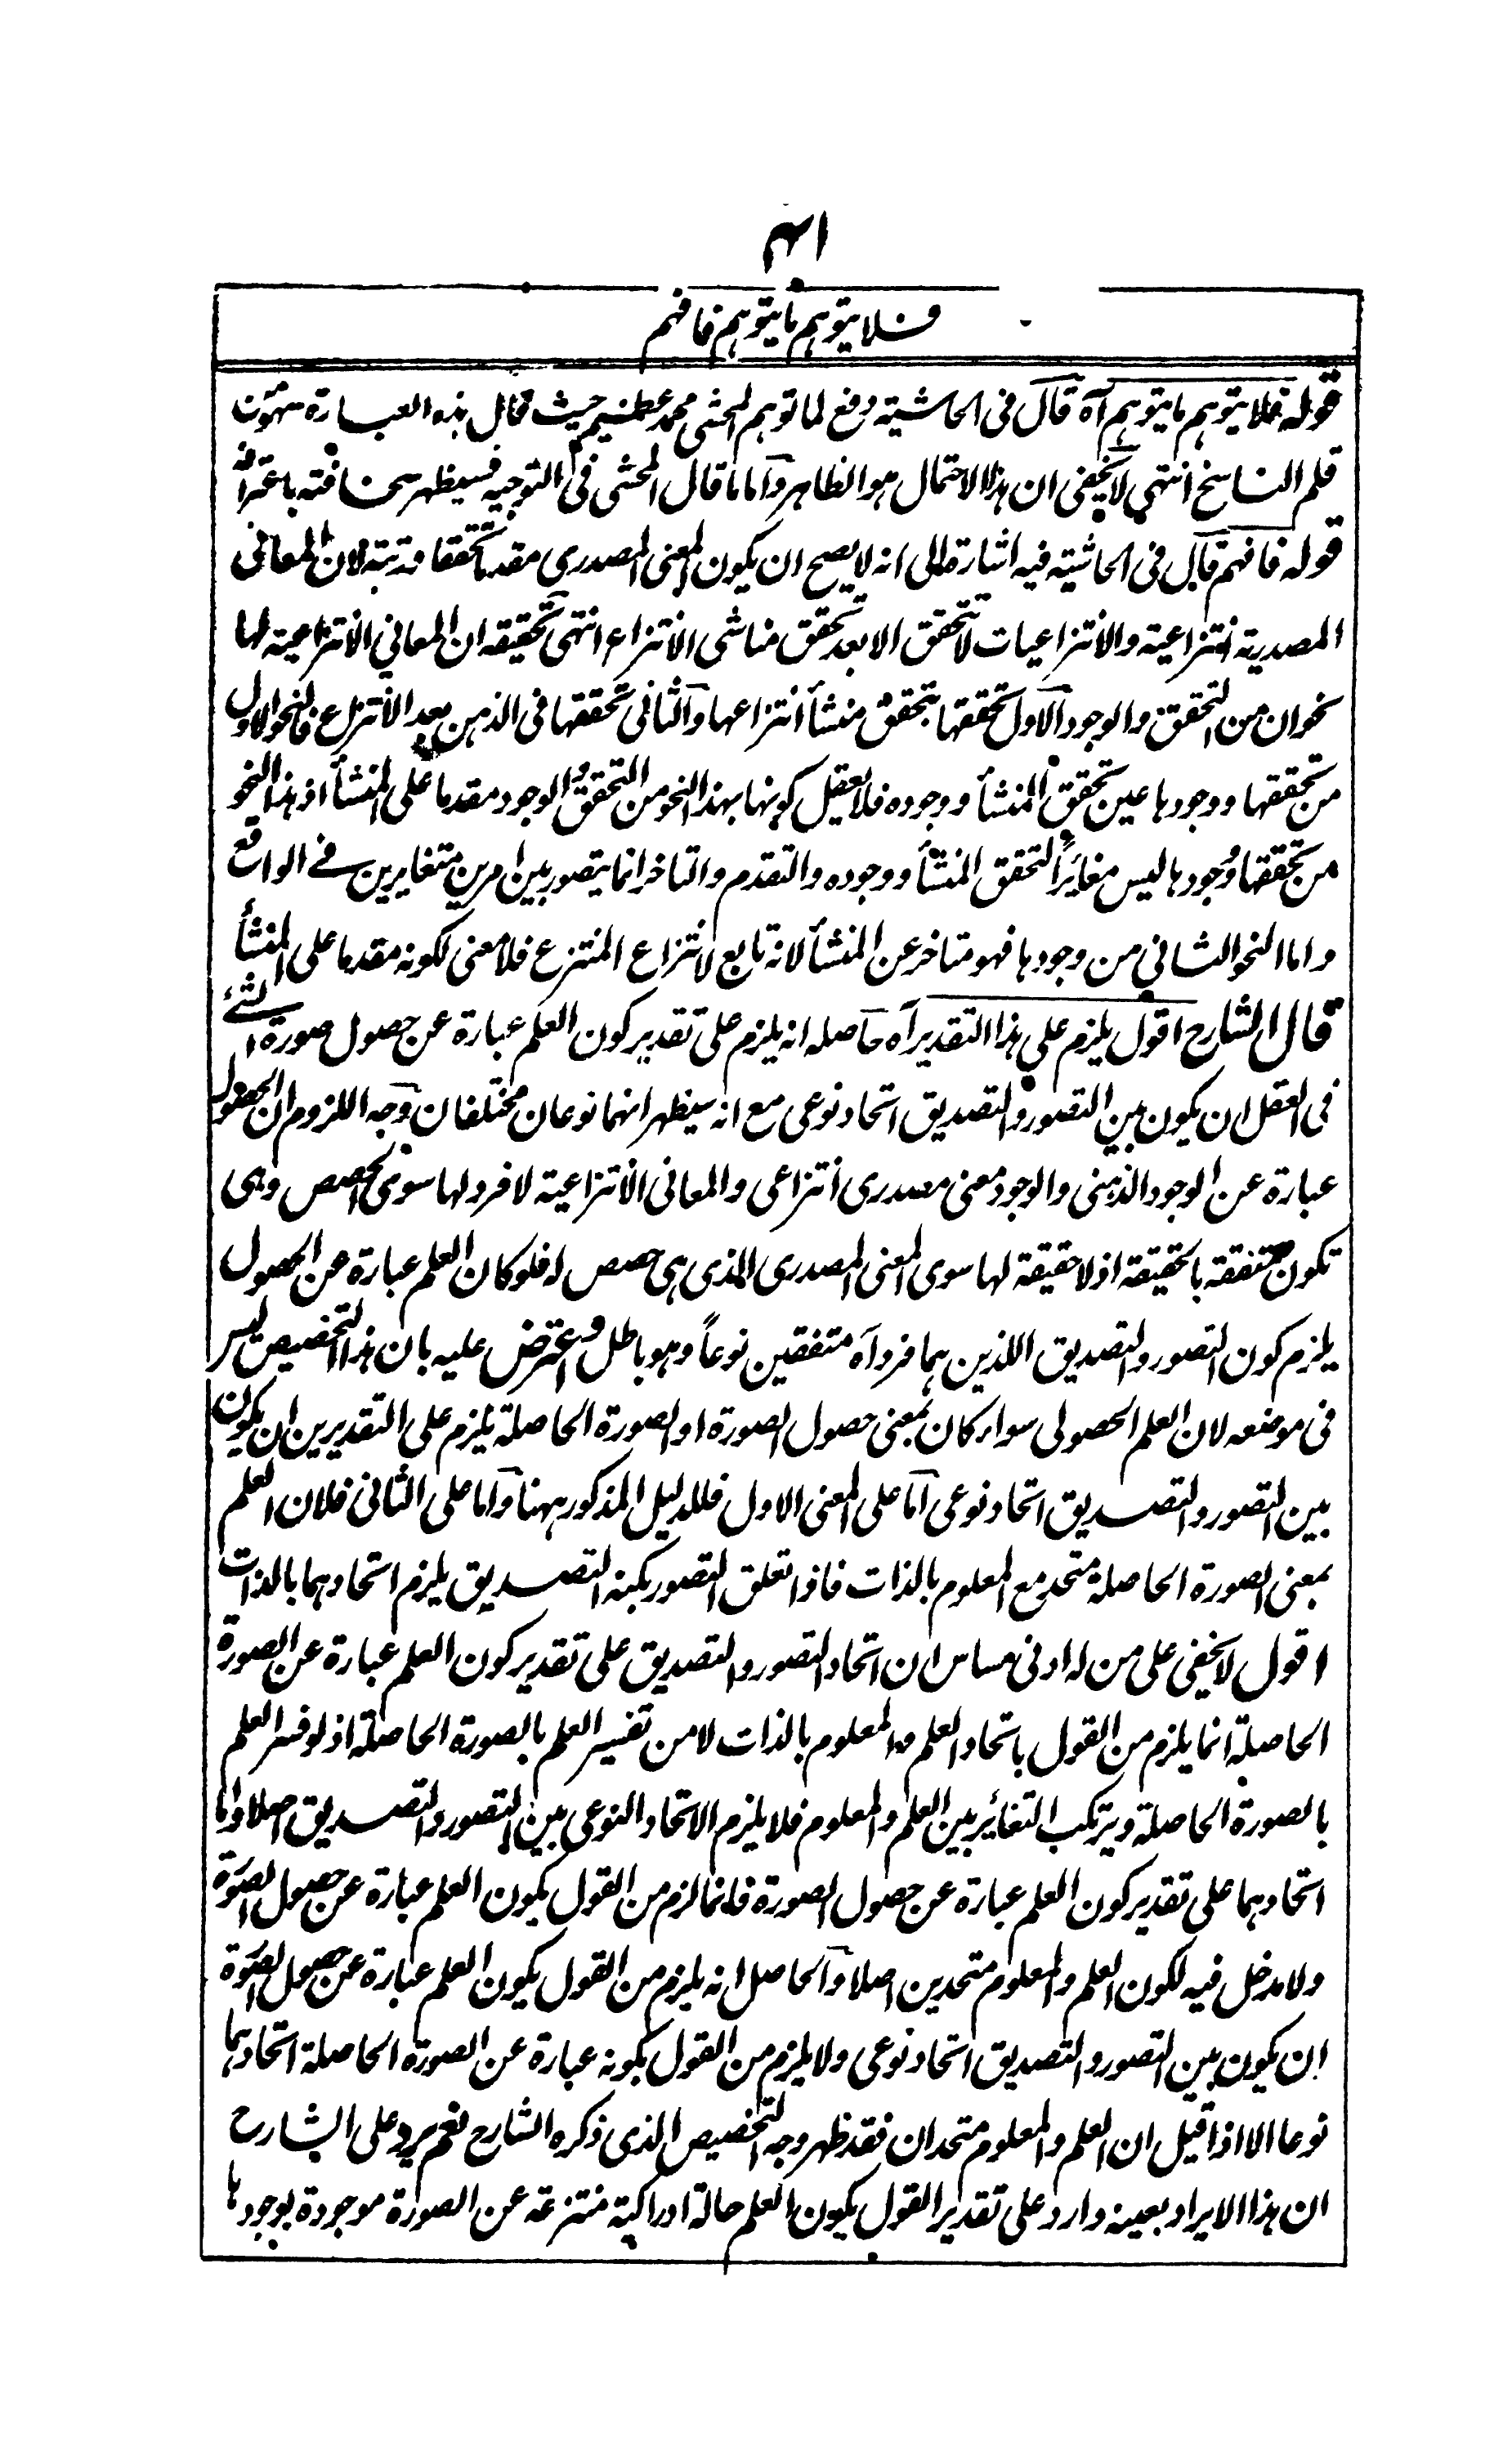 ۴۱
فلا يتوهم ما يتوهم فافهم
قوله فلا يتوهم ما يتوهم آه قال فى الحاشية دفع لما توهم المحشى محمد عظيم حيث قال هذه العبارة سهو من
قلم الناسخ انتهى لا يخفى ان هذا الاحتمال هو الظاهر واما ما قال المحشى فى التوجيه فسيظهر سخافته باعترافه
قوله فافهم قال فى الحاشية فيه اشارة الى انه لا يصح ان يكون المعنى المصدرى مقدما تحققا ورتبة لان المعانى
المصدرية انتزاعية والانتزاعيات لا تتحقق الا بعد تحقق مناشى الانتزاع انتهى تحقيقه ان المعاني الانتزاعية لها
نحوان من التحقق والوجود الاول تحققها بتحقق منشأ انتزاعها والثانى تحققها فى الذهن بعد الانتزاع فالنحو الاول
من تحققها ووجودها عين تحقق المنشأ ووجوده فلا يعقل كونها بهذا النحو من التحقق والوجود مقدما على المنشأ اذ هذا النحو
من تحققها ووجودها ليس مغائراً لتحقق المنشأ ووجوده والتقدم والتاخر انما يتصور بين امرين متغايرين في الواقع
واما النحو الثاني من وجودها فهو متاخر عن المنشأ لانه تابع لانتزاع المنتزع فلا معنى لكونه مقدما على المنشأ
قال الشارح اقول يلزم على هذا التقدير آه حاصله انه يلزم على تقدير كون العلم عبارة عن حصول صورة الشئ
فى العقل ان يكون بين التصور والتصديق اتحاد نوعى مع انه سيظهر انهما نوعان مختلفان وجه اللزوم ان الحصول
عبارة عن الوجود الذهنى والوجود معنى مصدرى انتزاعى والمعانى الانتزاعية لا فرد لها سوى الحصص وهى
تكون متفقة بالحقيقة اذ لا حقيقة لها سوى المعنى المصدرى الذى هى حصص له فلو كان العلم عبارة عن الحصول
يلزم كون التصور والتصديق اللذين هما فرداه متفقين نوعاً وهو باطل واعترض عليه بان هذا التخصيص ليس
فى موضعه لان العلم الحصولى سواء كان بمعنى حصول الصورة او الصورة الحاصلة يلزم على التقديرين ان يكون
بين التصور والتصديق اتحاد نوعى اما على المعنى الاول فللدليل المذكور ههنا واما على الثانى فلان العلم
بمعنى الصورة الحاصلة متحد مع المعلوم بالذات فاذا تعلق التصور بكنه التصديق يلزم اتحادهما بالذات
اقول لا يخفى على من له ادنى مساس ان اتحاد التصور والتصديق على تقدير كون العلم عبارة عن الصورة
الحاصلة انما يلزم من القول باتحاد العلم والمعلوم بالذات لا من تفسير العلم بالصورة الحاصلة اذ لو فسر العلم
بالصورة الحاصلة ويرتكب التغائر بين العلم والمعلوم فلا يلزم الاتحاد النوعى بين التصور والتصديق اصلا واما
اتحادهما على تقدير كون العلم عبارة عن حصول الصورة فانما لزم من القول بكون العلم عبارة عن حصول الصورة
ولا مدخل فيه لكون العلم والمعلوم متحدين اصلا والحاصل انه يلزم من القول بكون العلم عبارة عن حصول الصورة
ان يكون بين التصور والتصديق اتحاد نوعى ولا يلزم من القول بكونه عبارة عن الصورة الحاصلة اتحادهما
نوعا الا اذا قيل ان العلم والمعلوم متحدان فقد ظهر وجه التخصيص الذى ذكره الشارح نعم يرد على الشارح
ان هذا الايراد بعينه وارد على تقدير القول بكون العلم حالة ادراكية منتزعة عن الصورة موجودة بوجودها